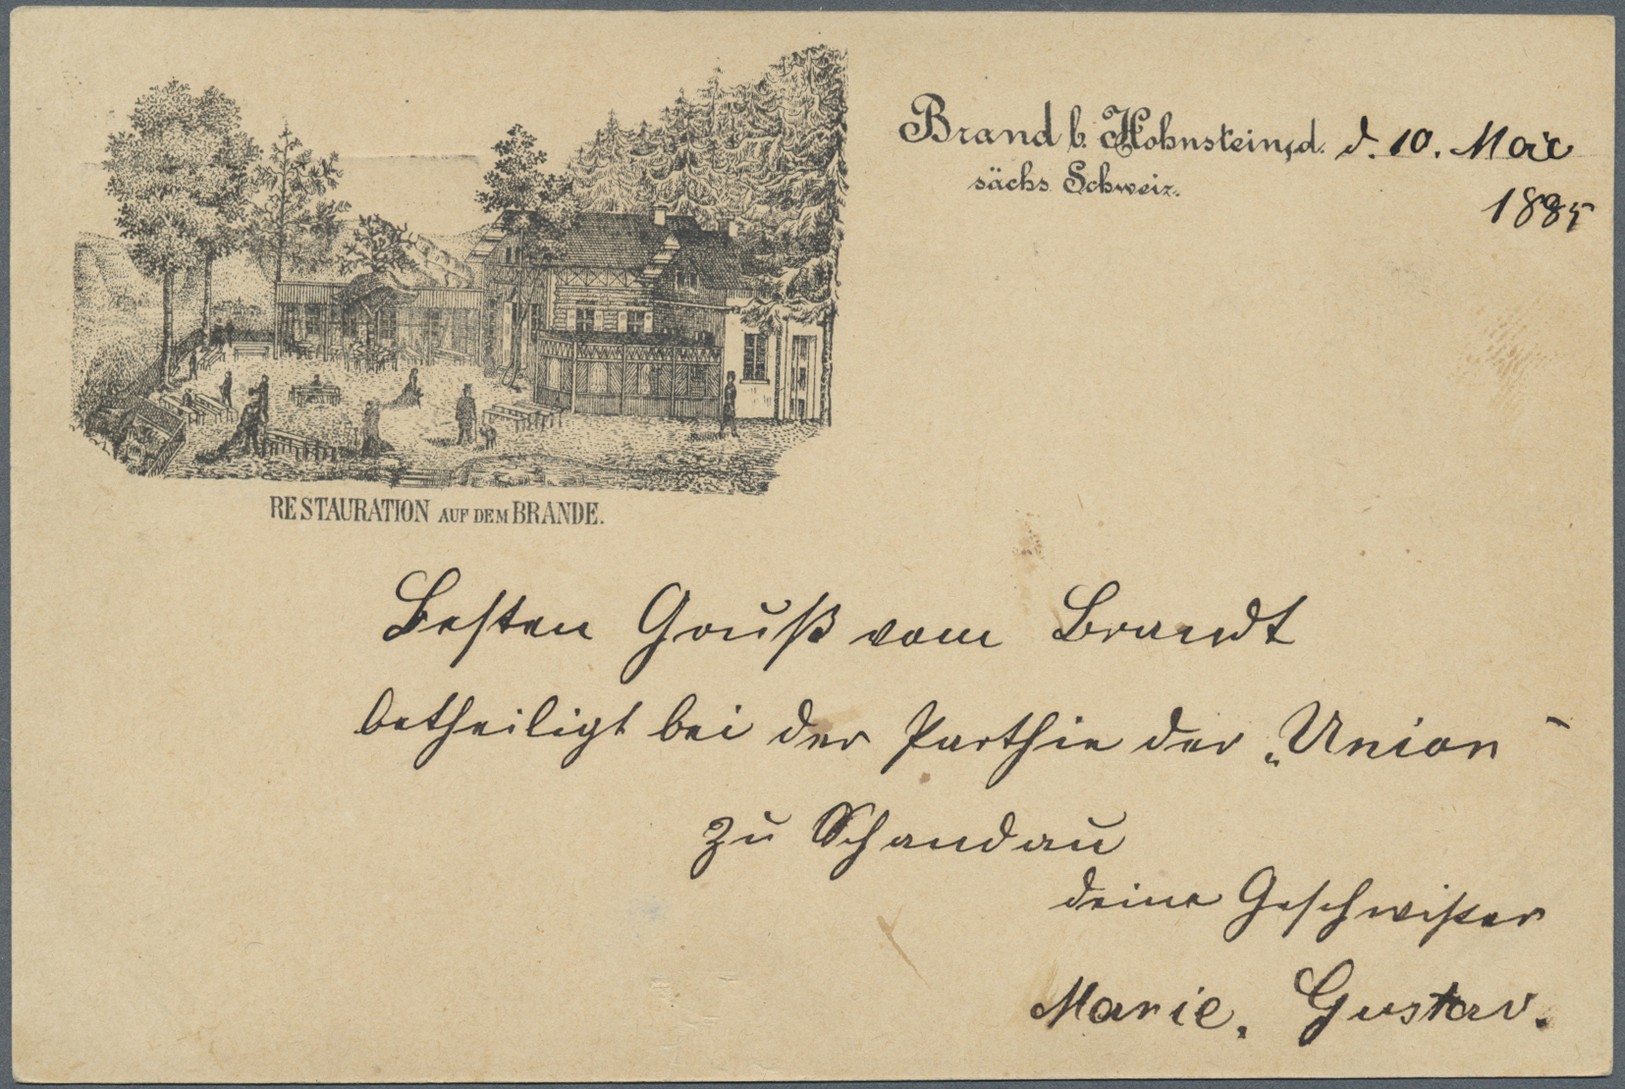 Brand b. Hohnstein, d. d. 10. Mai
sächs Schweiz.
1885
RESTAURATION AUF DEM BRANDE.
Besten Gruß vom Brandt
betheiligt bei der Parthie der „Union“
zu Schandau
deine Geschwister
Marie, Gustav.